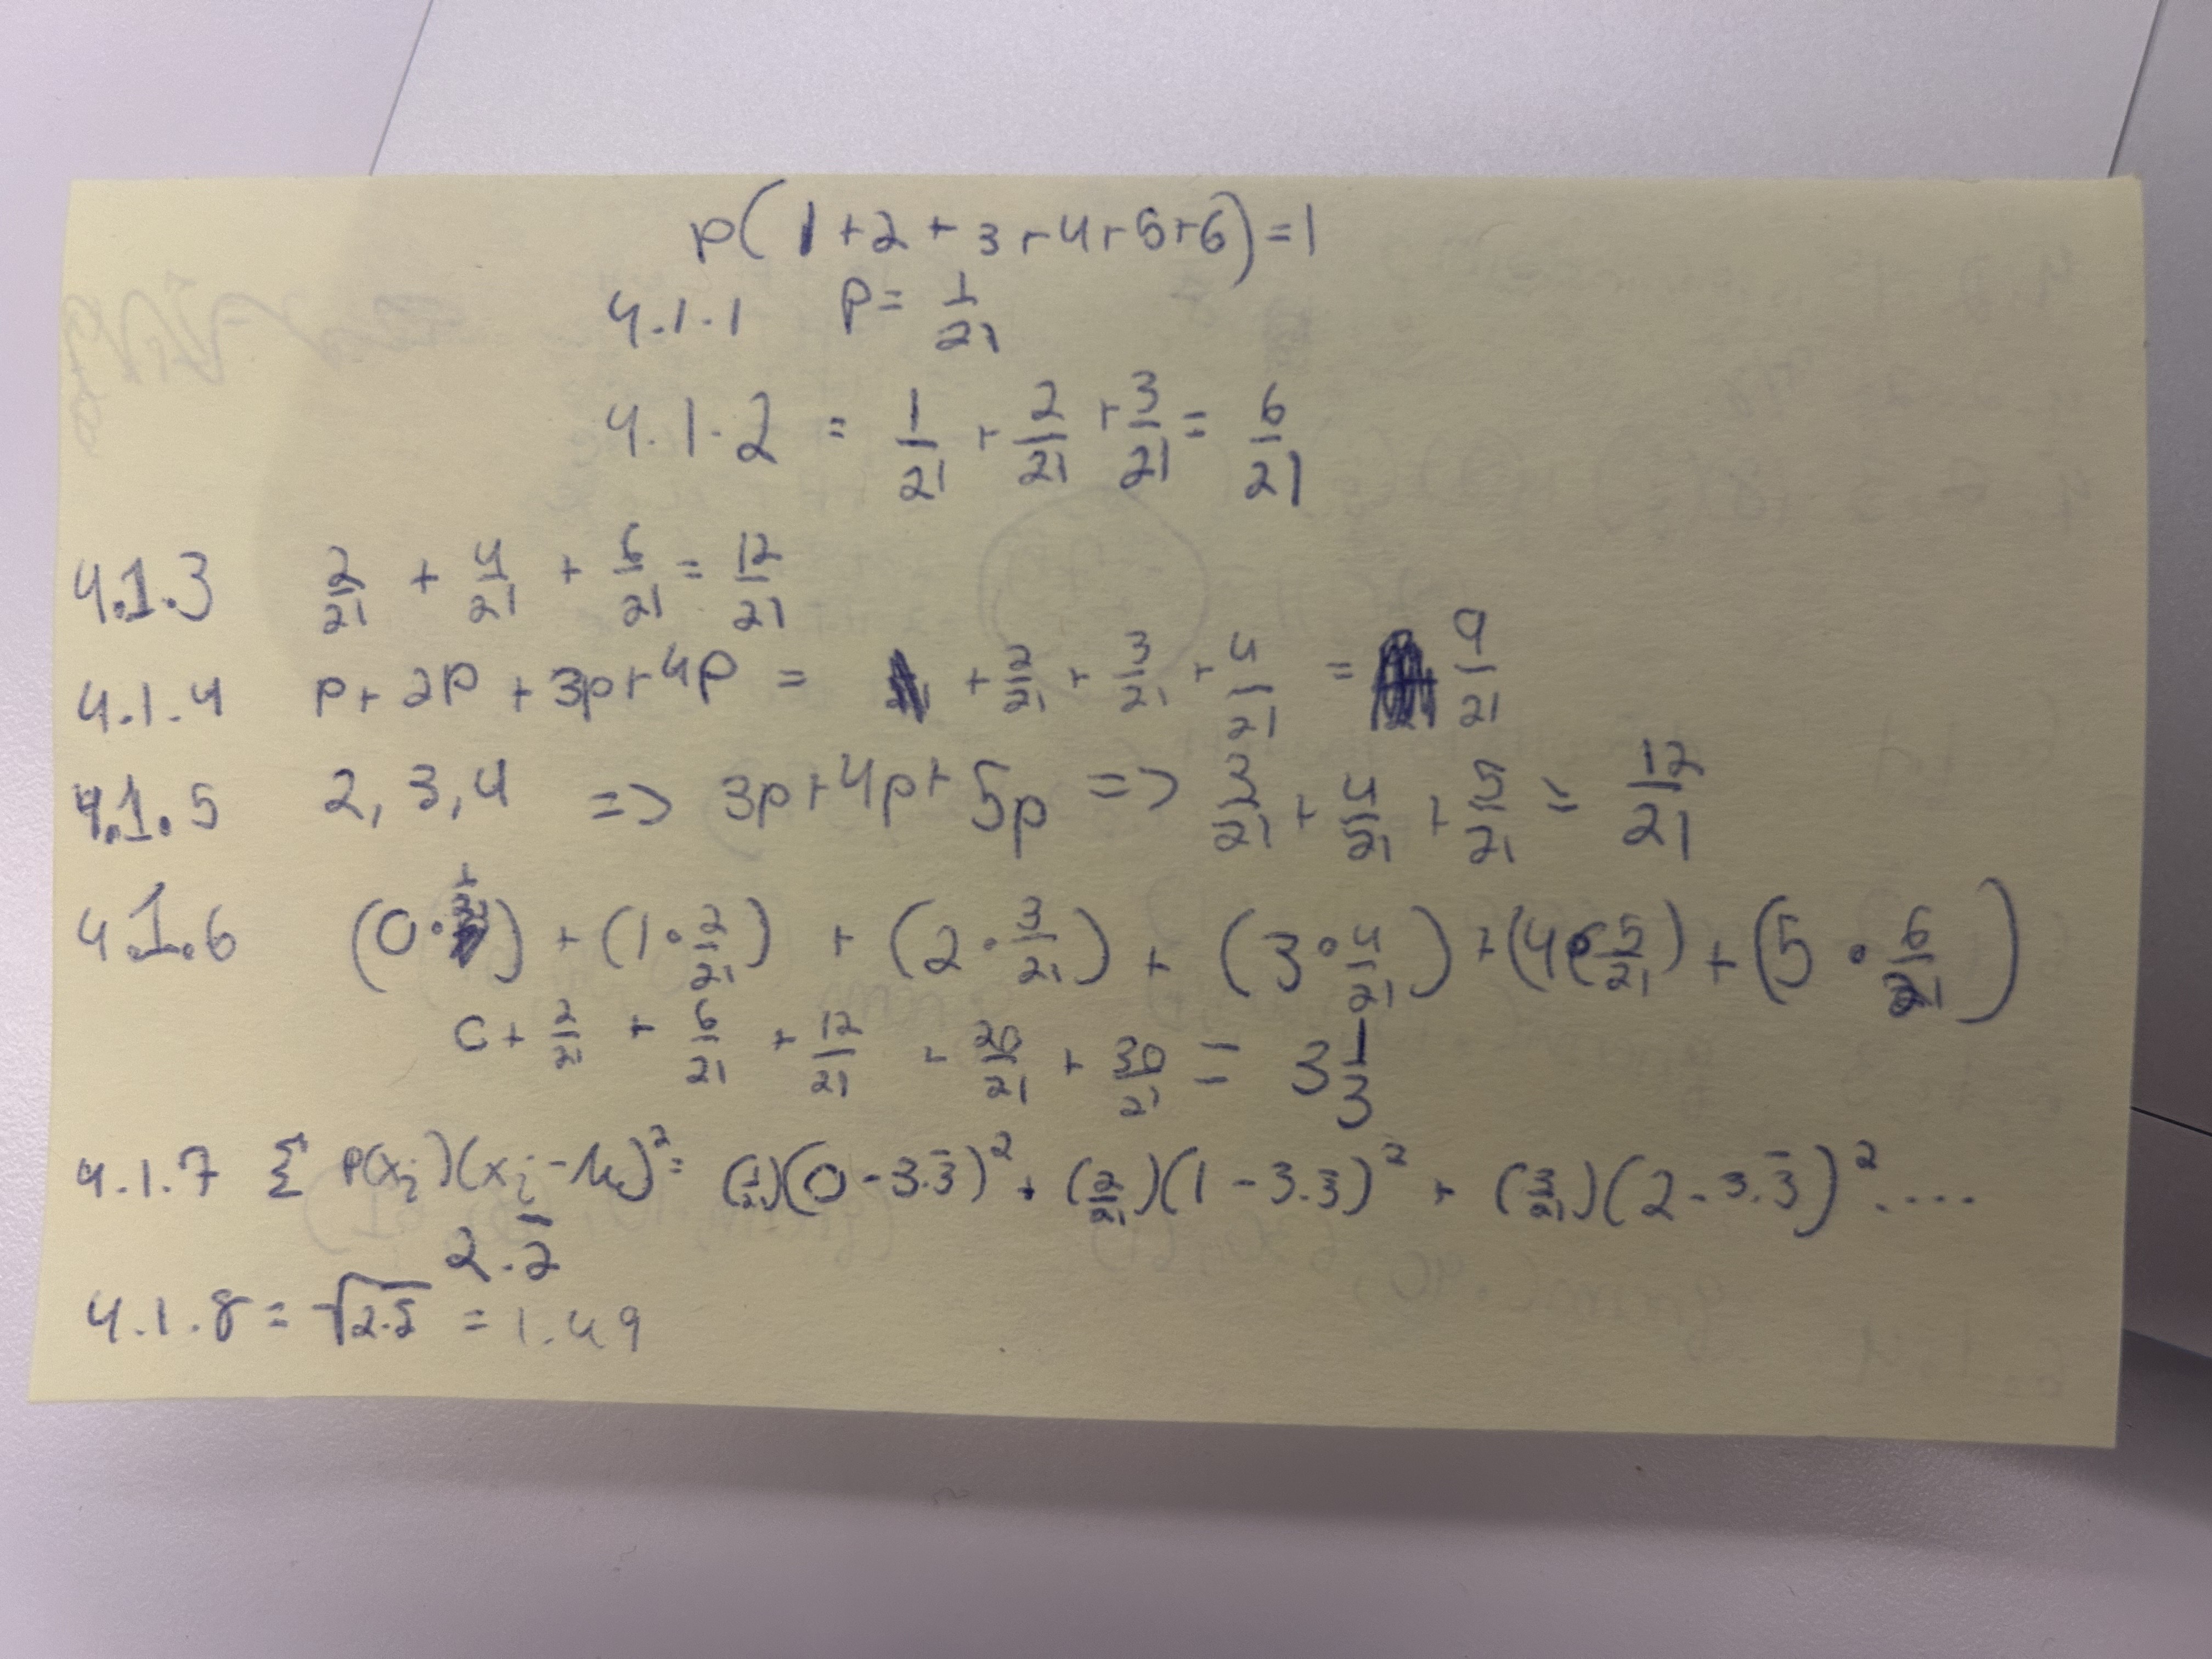 p(1+2+3+4+5+6)=1
4.1.1 p= 1/21
4.1.2 = 1/21 + 2/21 + 3/21 = 6/21
4.1.3 2/21 + 4/21 + 6/21 = 12/21
4.1.4 p+ 2p + 3p+4p = + 2/21 + 3/21 + 4/21 = 9/21
4.1.5 2, 3, 4 => 3p+4p+5p => 3/21 + 4/21 + 5/21 = 12/21
4.1.6 (0·1/21) + (1·2/21) + (2·3/21) + (3·4/21) + (4·5/21) + (5·6/21)
0+ 2/21 + 6/21 + 12/21 + 20/21 + 30/21 = 3 1/3
4.1.7 Σ P(xi)(xi-μ)² = (1/21)(0-3.3̄)² + (2/21)(1-3.3̄)² + (3/21)(2-3.3̄)² ....
2.2̄
4.1.8 = √2.5 = 1.49